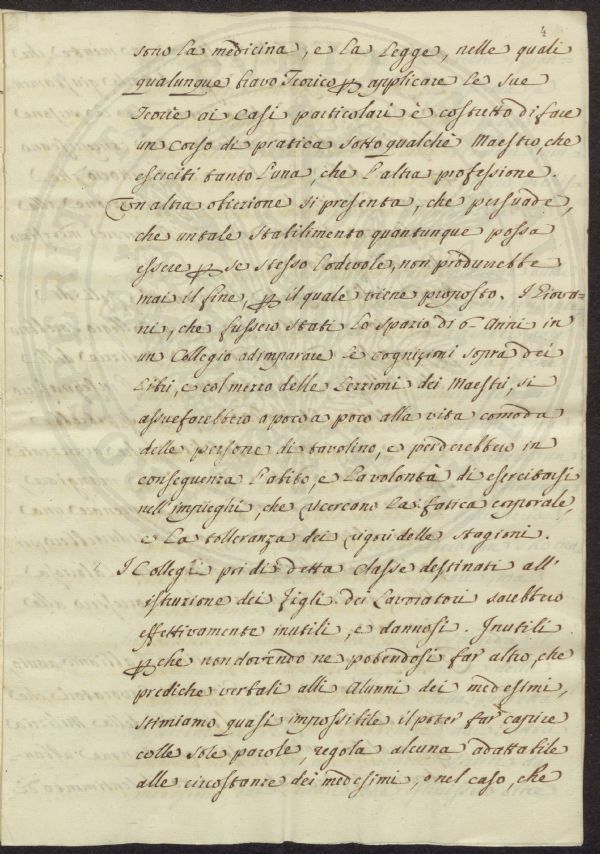 4
sono la medicina, e la Legge, nelle quali
qualunque bravo Teorico ꝑ applicare le sue
Teorie ai Casi particolari è costretto di fare
un Corso di pratica sotto qualche Maestro, che
eserciti tanto l'una, che l'altra professione.
Un altra obiezione si presenta, che persuade,
che un tale Stabilimento quantunque possa
essere ꝑ se stesso lodevole, non produrrebbe
mai il fine, ꝑ il quale viene proposto. I Giova=
ni, che fussero stati lo spazio di 6 Anni in
un Collegio ad imparare le cognizioni sopra dei
Libri, e col mezzo delle Lezzioni dei Maestri, si
assuefarebbero a poco a poco alla vita comoda
delle persone di tavolino, e perderebbero in
conseguenza l'abito, e la volontà di esercitarsi
nell'impieghi, che ricercano la fatica corporale,
e la tolleranza dei rigori delle Stagioni.
I Collegi di detta Classe destinati all'
istruzione dei figli dei Lavoratori sarebbero
effettivamente inutili, e dannosi. Inutili
ꝑche non dovendo ne potendosi far altro, che
prediche verbali alli Alunni dei medesimi,
stimiamo quasi impossibile il poter far capire
colle sole parole, regola alcuna adattabile
alle circostanze dei medesimi, e nel caso, che